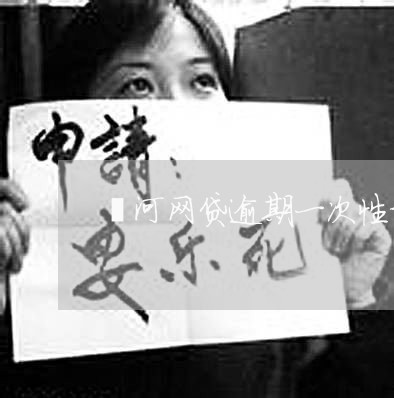 申請：
河网贷逾期一次性
安乐死